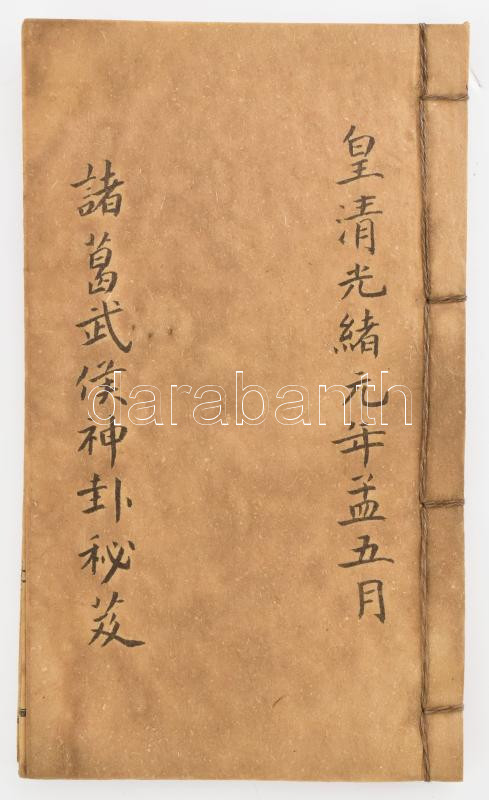 皇清光緒元年孟五月
諸葛武侯神卦秘芨
darabanth